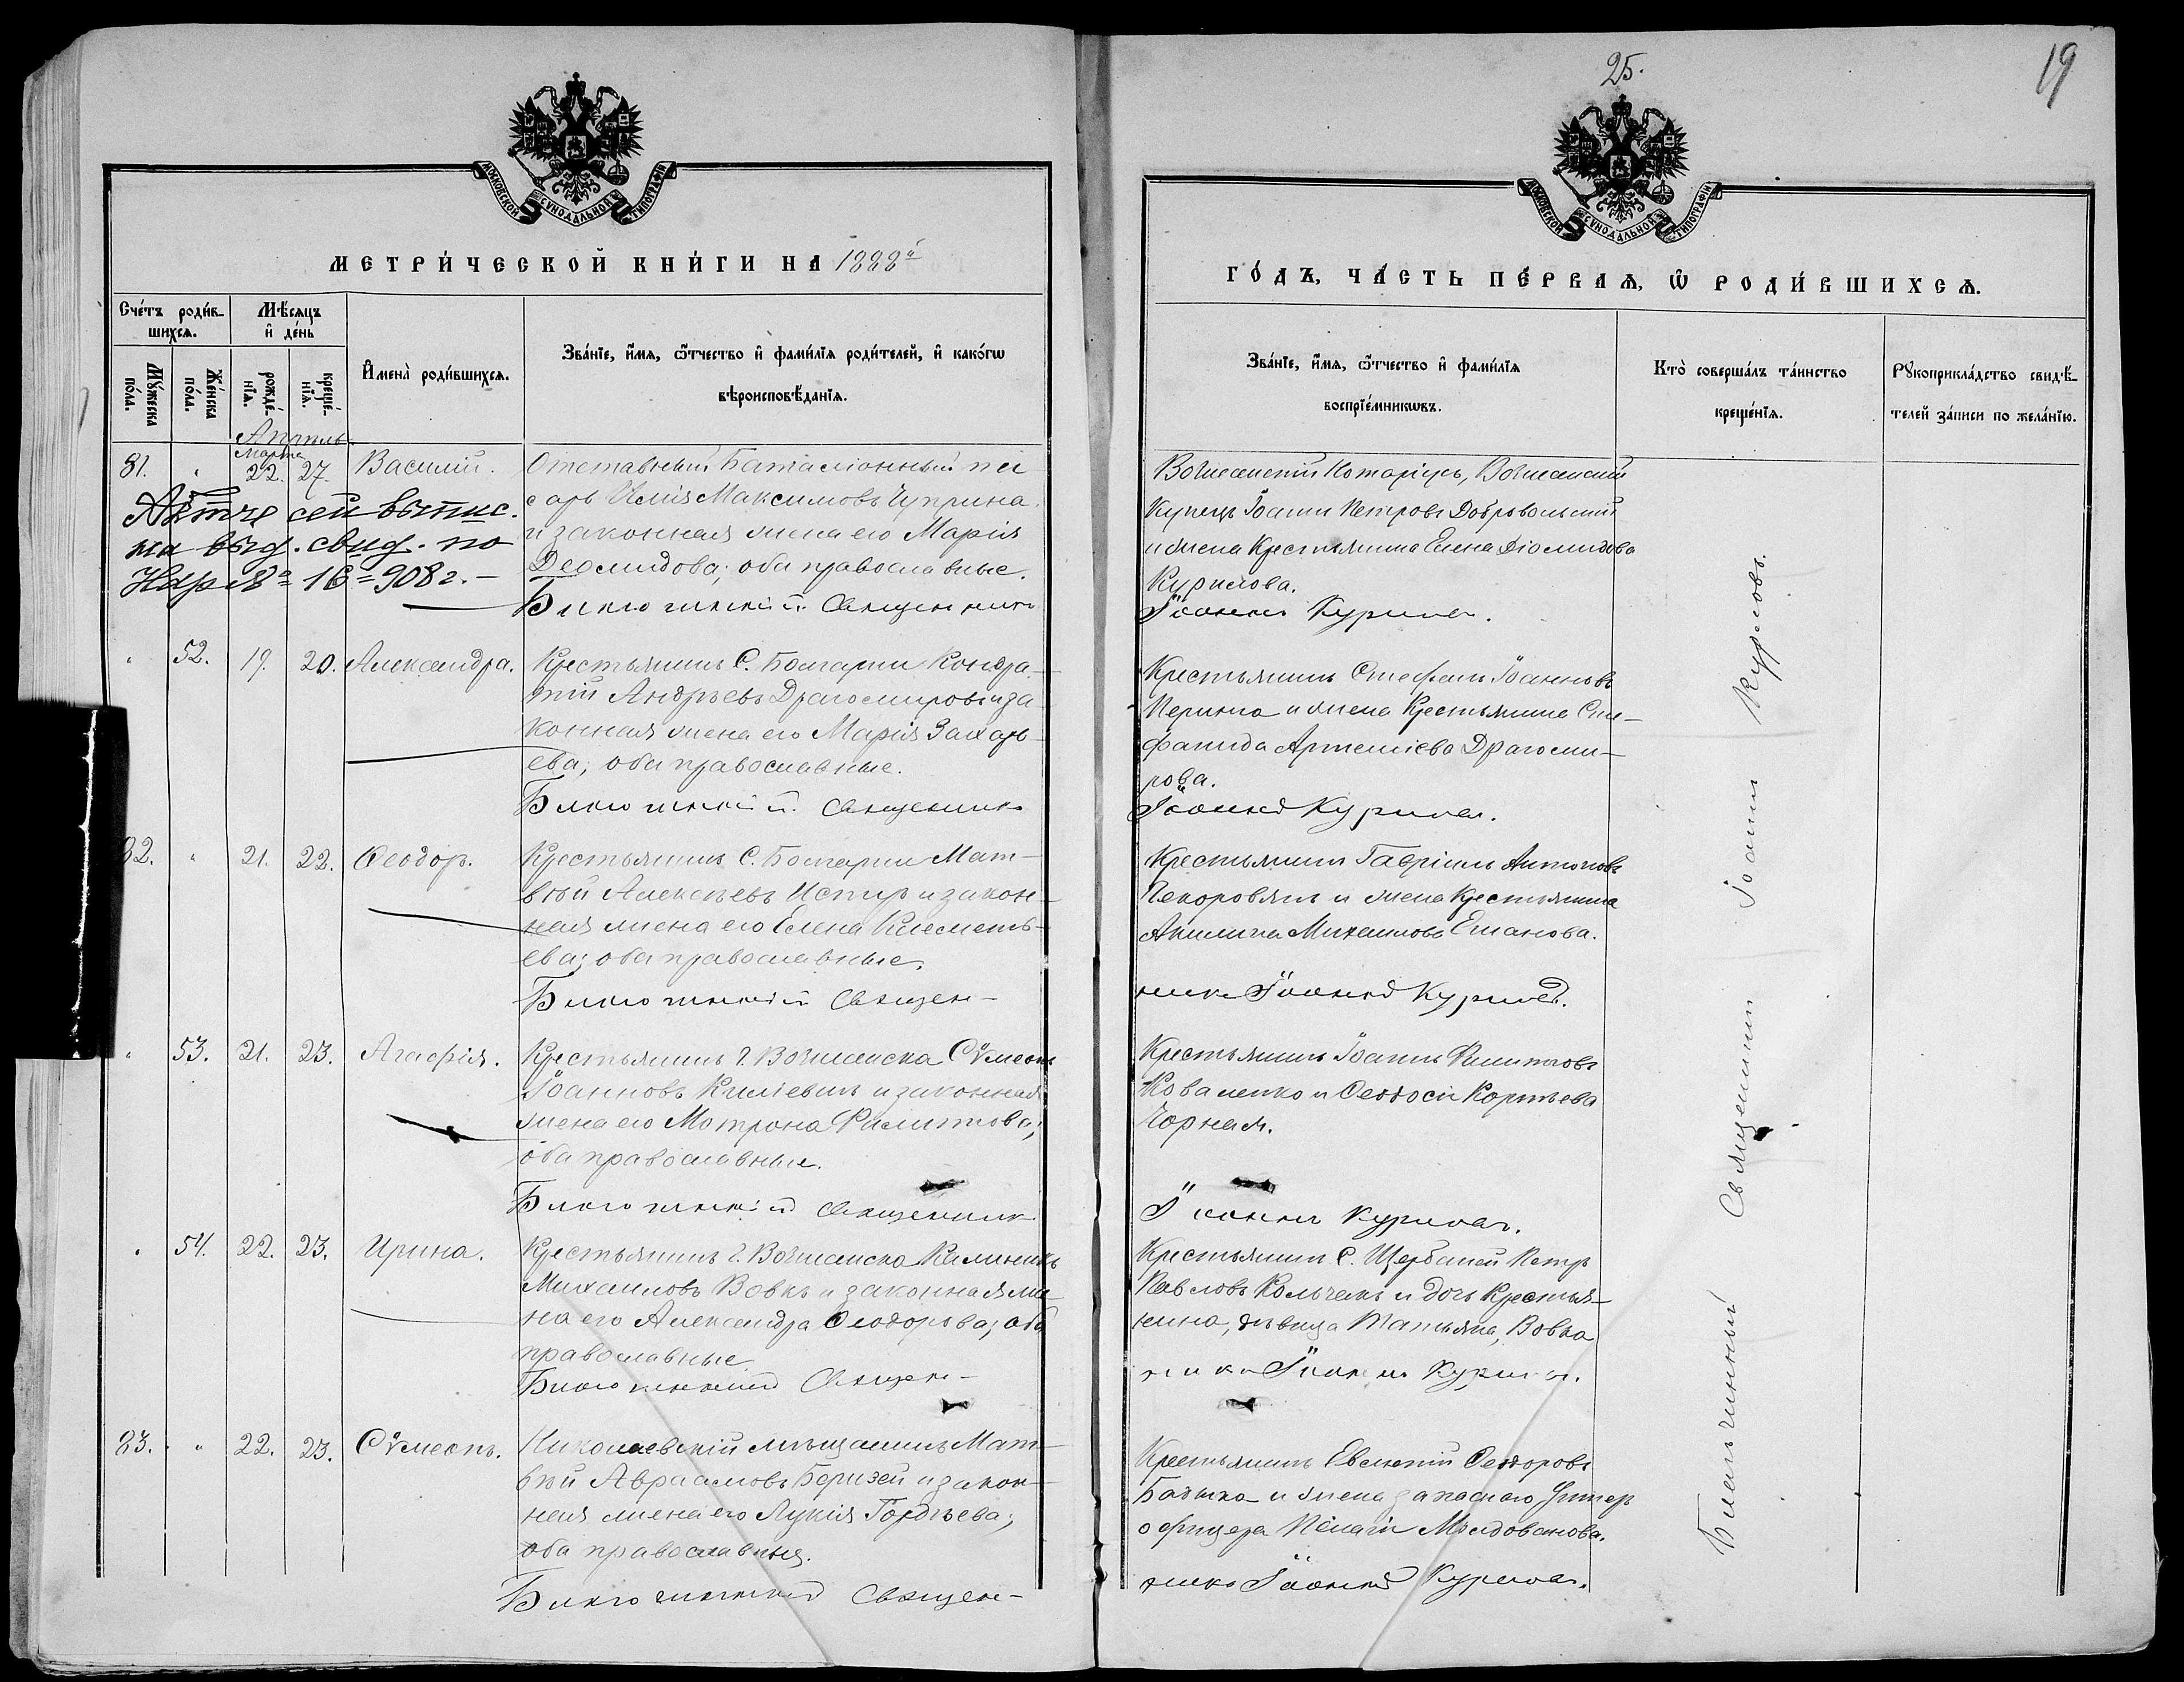 25.
19
МОСКОВСКОЙ СѴНОДАЛЬНОЙ ТИПОГРАФІИ
МОСКОВСКОЙ СѴНОДАЛЬНОЙ ТИПОГРАФІИ
МЕТРИ́ЧЕСКОЙ КНИ́ГИ НА 1888й
ГО́ДЪ, ЧА́СТЬ ПЕ́РВАѦ, Ѽ РОДИ́ВШИХСѦ.
Сче́тъ роди́в-
шихсѧ.
Мꙋ́жеска
по́ла.
Же́нска
по́ла.
Мѣ́сѧцъ
и҆ де́нь
рожде́-
нїѧ.
креще́-
нїѧ.
И҆мена̀ роди́вшихсѧ.
Зва́нїе, и҆́мѧ, ѻ҆́тчество и҆ фами́лїѧ роди́телей, и҆ како́гѡ
вѣроисповѣ́данїѧ.
Зва́нїе, и҆́мѧ, ѻ҆́тчество и҆ фами́лїѧ
воспрїе́мникѡвъ.
Кто̀ соверша́лъ та́инство
креще́нїѧ.
Рꙋкоприкла́дство свидѣ́-
телей за́писи по жела́нїю.
Апрѣль
Марта
81. " 22. 27. Василій.
Отставный Баталіонный пи
сарь Илія Максимовъ Чуприна
и законная жена его Марія
Деомидова; оба православные.
Благочинный Священникъ
О сей выпис.
на выд. свид. по
Нар № 16 = 908 г. —
Вознесенскій Нотаріусъ, Вознесенскій
Купецъ Іоаннъ Петровъ Добровольскій
и жена Крестьянина Елена Діомидова
Курилова.
Іоаннъ Куриловъ.
" 52. 19. 20. Александра.
Крестьянинъ С. Болгарки Кондра-
тій Андреевъ Драгомировъ и за-
конная жена его Марія Захарь-
ева; оба православные.
Благочинный Священникъ
Крестьянинъ Стефанъ Іоанновъ
и жена Крестьянина Сте-
фанида Артеміева Драгоми-
рова.
Іоаннъ Куриловъ.
82. " 21. 22. Ѳеодоръ.
Крестьянинъ С. Болгарки Мат-
вѣй Алексѣевъ и закон-
ная жена его Елена Климентъ-
ева; оба православные.
Благочинный Священ-
Крестьянинъ Гавріилъ Антоновъ
и жена Крестьянина
Акилина Михаилова
никъ Іоаннъ Куриловъ.
" 53. 21. 23. Агафія.
Крестьянинъ г. Вознесенска Сѵмеонъ
Іоанновъ и законная
жена его Мотрона Филиппова;
оба православные.
Благочинный Священникъ
Крестьянинъ Іоаннъ Филипповъ
Коваленко и Ѳеодосія Корнѣева
Чорная.
Іоаннъ Куриловъ.
" 54. 22. 23. Ирина.
Крестьянинъ г. Вознесенска Каллиникъ
Михаиловъ Вовкъ и законная же-
на его Александра Ѳеодорова; оба
православные.
Благочинный Священ-
Крестьянинъ С. Щербаней Петръ
Павловъ Кольчакъ и дочь Крестья-
нина, дѣвица Татьяна, Вовка
никъ Іоаннъ Куриловъ.
83. " 22. 23. Сѵмеонъ.
Николаевскій мѣщанинъ Мат-
вѣй Авраамовъ Беризей и закон-
ная жена его Лукія Гордѣева;
оба православные.
Благочинный Священ-
Крестьянинъ Евсигній Ѳеодоровъ
и жена запаснаго Унтеръ
офицера Пелагія Молдованова.
никъ Іоаннъ Куриловъ.
Благочинный Священникъ Іоаннъ Куриловъ.